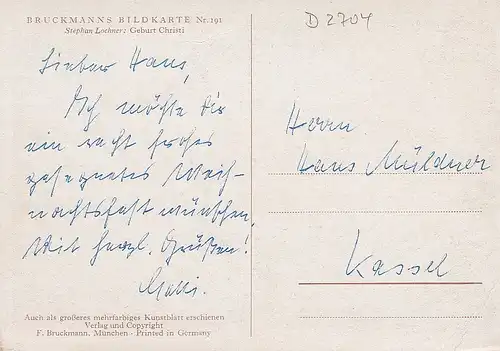 BRUCKMANNS BILDKARTE Nr. 191
Stephan Lochner: Geburt Christi
D 2704
Lieber Hans,
Ich möchte Dir
ein recht frohes
gesegnetes Weih-
nachtsfest wünschen.
Mit herzl. Grüßen!
Herrn
Hans Müldner
Kassel
Auch als großeres mehrfarbiges Kunstblatt erschienen
Verlag und Copyright
F. Bruckmann, München - Printed in Germany